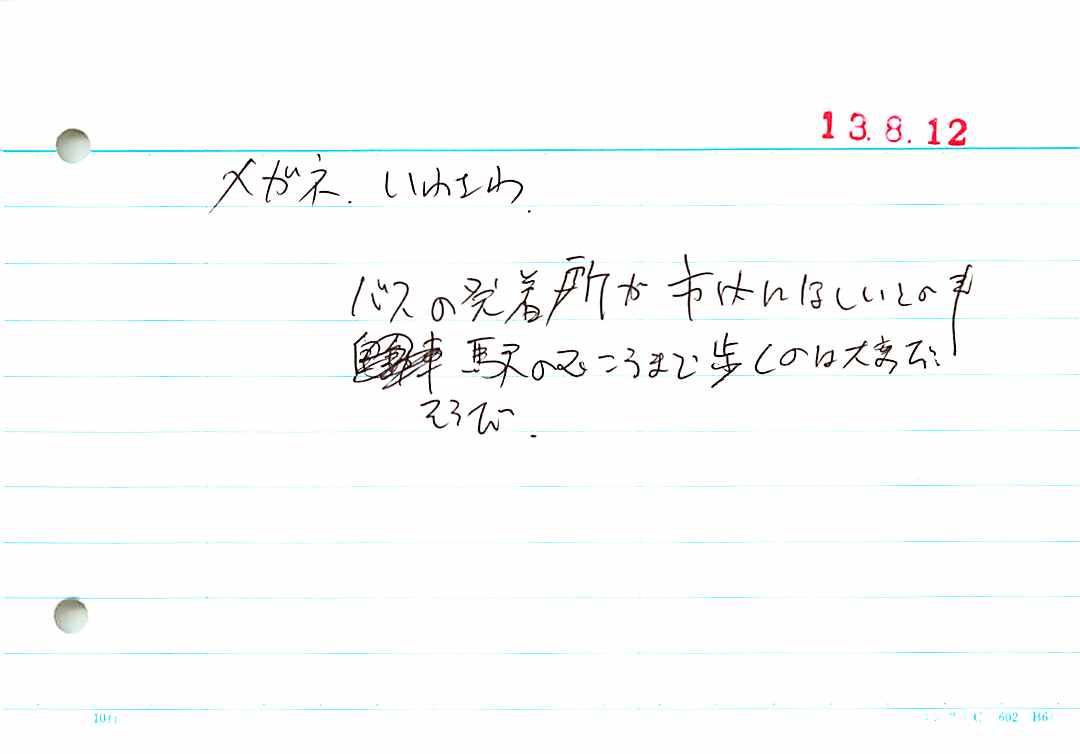 13.8.12
メガネ. いわさわ.
バスの発着所が市内にほしいとの事
駅のところまで歩くのは大変だ
そうだ.
602 B6